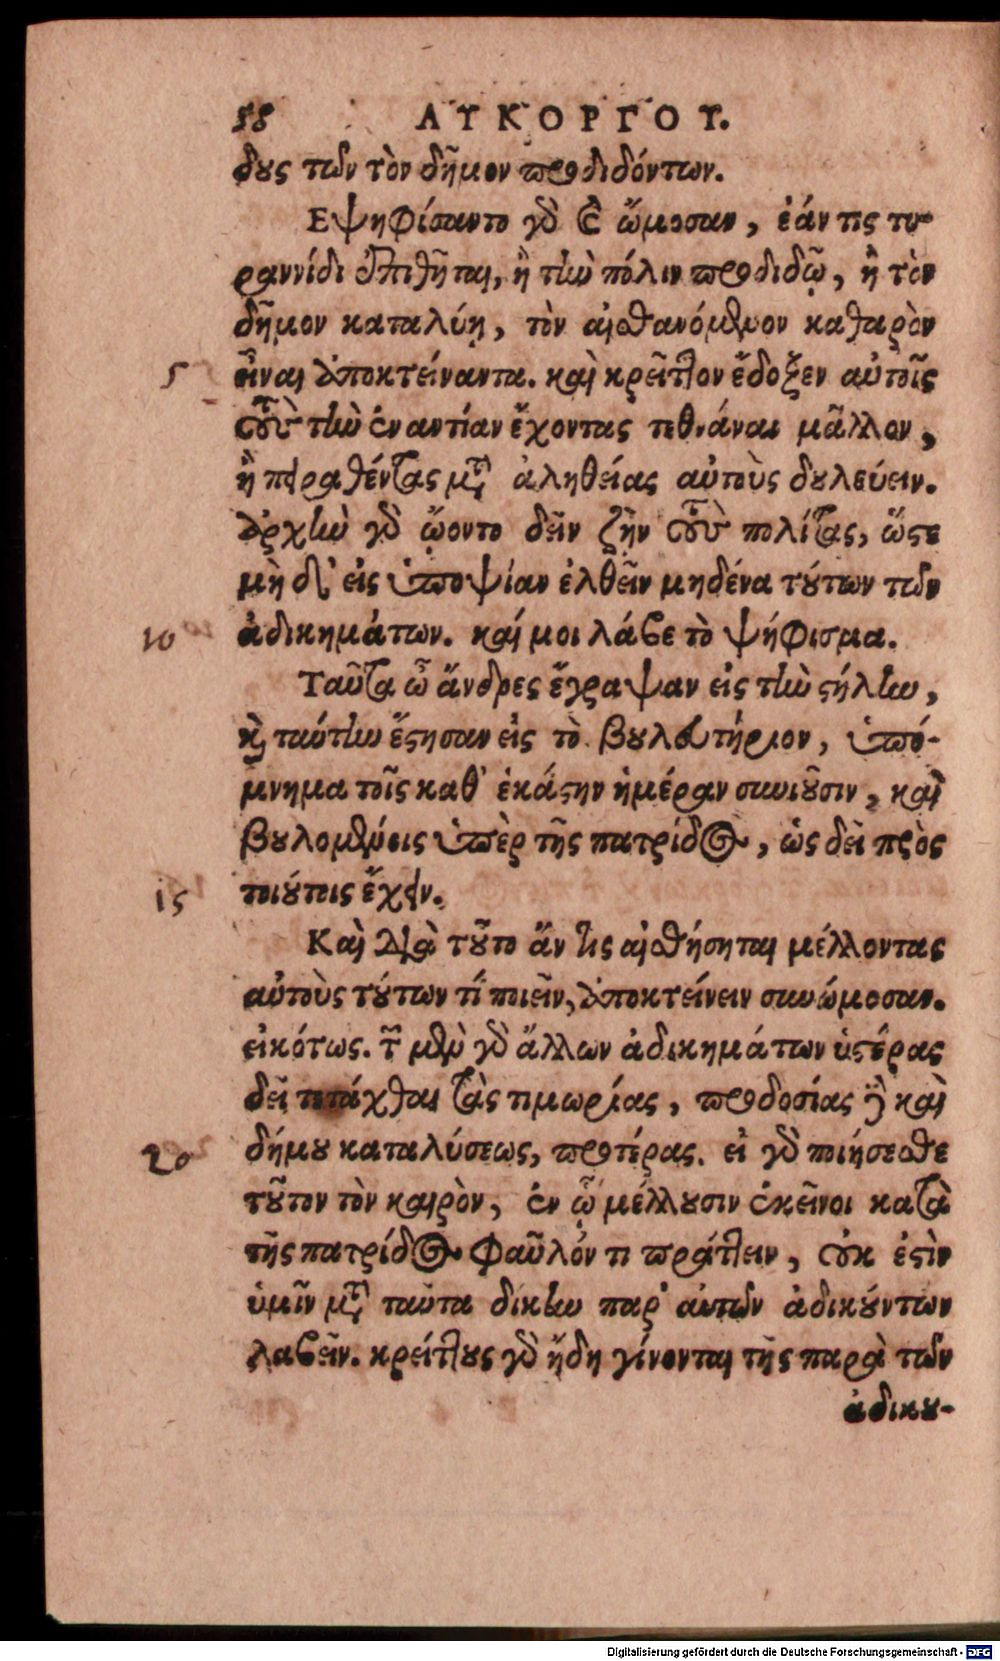 58 ΛΥΚΟΡΓΟΥ.
δους τῶν τὸν δῆμον προδιδόντων.
Εψηφίσαντο γὸ καὶ ὤμοσαν, ἐάν τις τυ-
ραννίδι ἐπιθῆται, ἢ τὴν πόλιν προδιδῷ, ἢ τὸν
δῆμον καταλύῃ, τὸν αἰσθανόμενον καθαρὸν
5 εἶναι ἀποκτείναντα. καὶ κρεῖττον ἔδοξεν αὐτοῖς
τοὺς τὴν ἐναντίαν ἔχοντας τεθνάναι μᾶλλον,
ἢ πειραθέντας μετὰ ἀληθείας αὐτοὺς δουλεύειν.
ἀρχὴν γὸ ᾤοντο δεῖν ζὴν τοὺς πολίτας, ὥστε
μὴ δ' εἰς ὑποψίαν ἐλθεῖν μηδένα τούτων τῶν
10 ἀδικημάτων. καί μοι λάβε τὸ ψήφισμα.
Ταῦτα ὦ ἄνδρες ἔγραψαν εἰς τὴν στήλην,
καὶ ταύτην ἔστησαν εἰς τὸ βουλευτήριον, ὑπό-
μνημα τοῖς καθ' ἑκάστην ἡμέραν συνιοῦσιν, καὶ
βουλομένοις ὑπὲρ τῆς πατρίδος, ὡς δεὶ πρὸς
15 τοιούτοις ἔχειν.
Καὶ διὰ τοῦτο ἄν τις αἰσθήσηται μέλλοντας
αὐτοὺς τούτων τί ποιεῖν, ἀποκτείνειν συνώμοσαν.
εἰκότως. τῶν μὲν γὸ ἄλλων ἀδικημάτων ὑστέρας
δεῖ τετάχθαι τὰς τιμωρίας, προδοσίας δὲ καὶ
20 δήμου καταλύσεως, προτέρας. εἰ γὸ ποιήσεσθε
τοῦτον τὸν καιρὸν, ἐν ᾧ μέλλουσιν ἐκεῖνοι κατὰ
τῆς πατρίδος φαῦλόν τι πράττειν, οὐκ ἐστὶν
ὑμῖν μετὰ ταῦτα δίκην παρ' αὐτῶν ἀδικούντων
λαβεῖν. κρείττους γὸ ἤδη γίνονται τῆς παρὰ τῶν
ἀδικου-
Digitalisierung gefördert durch die Deutsche Forschungsgemeinschaft - DFG